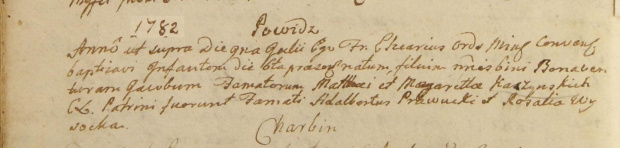 1782 Powidz
Anno ut supra Die qua Ego Fr. Elzearius Ord. Min. Convent
baptisavi Infantem die natum, filium nnis bini Bonaven
turam Jacobum Famatorum Mathæi et Margaritta Kaczynskich
C. L. Patrini fuerunt Famati Adalbertus et Rosalia Wy
socka.
Charbin